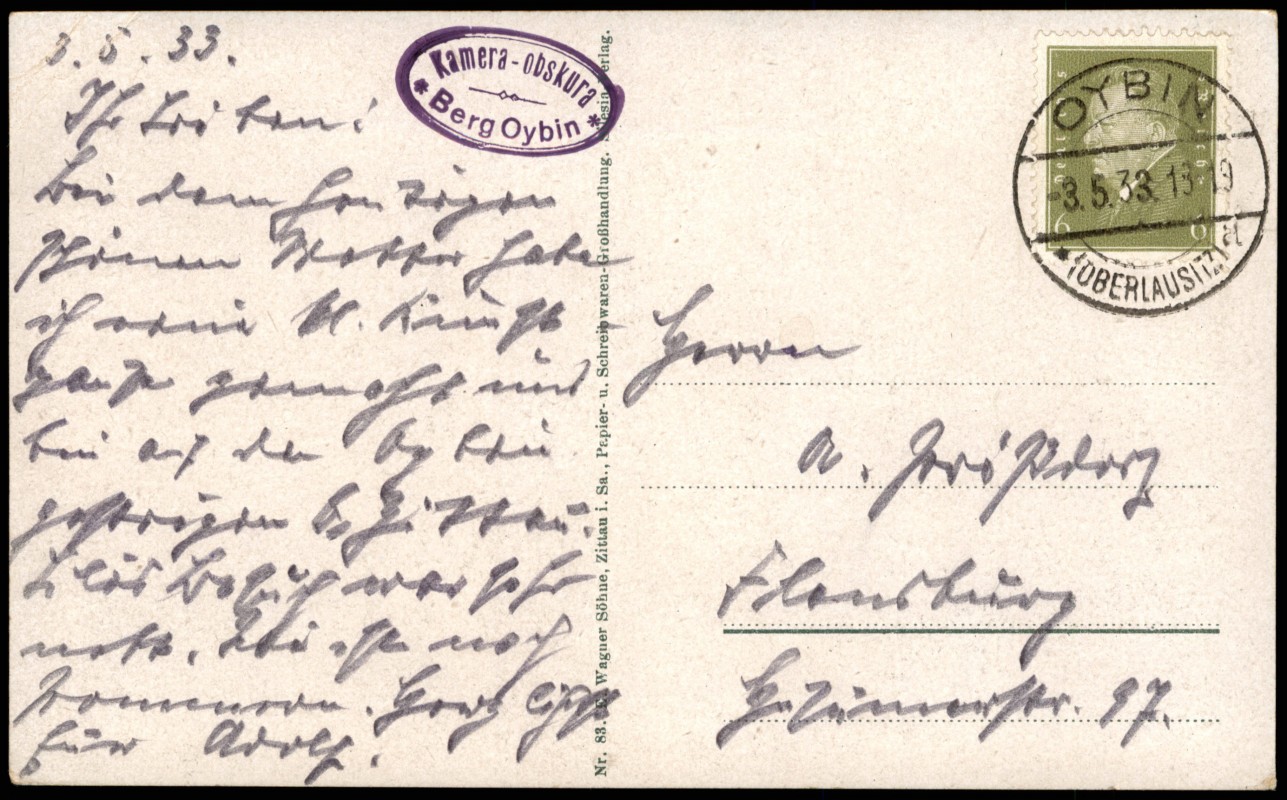 3.5.33.
Ihr Lieben!
Bei dem heutigen
schönen Wetter habe
ich eine kl. Kunst
pause gemacht und
bin auf den Oybin
gestiegen b. Zittau.
Besuch war sehr
nett. ist noch
Pommern. Herzl
für Adolf.
Kamera-obskura
* Berg Oybin *
Nr. 83. Wagner Söhne, Zittau i. Sa., Papier- u. Schreibwaren-Großhandlung.
OYBIN
-3.5.33.13-19
a
* (OBERLAUSITZ)
6 6
Herrn
A.
Flensburg
97.